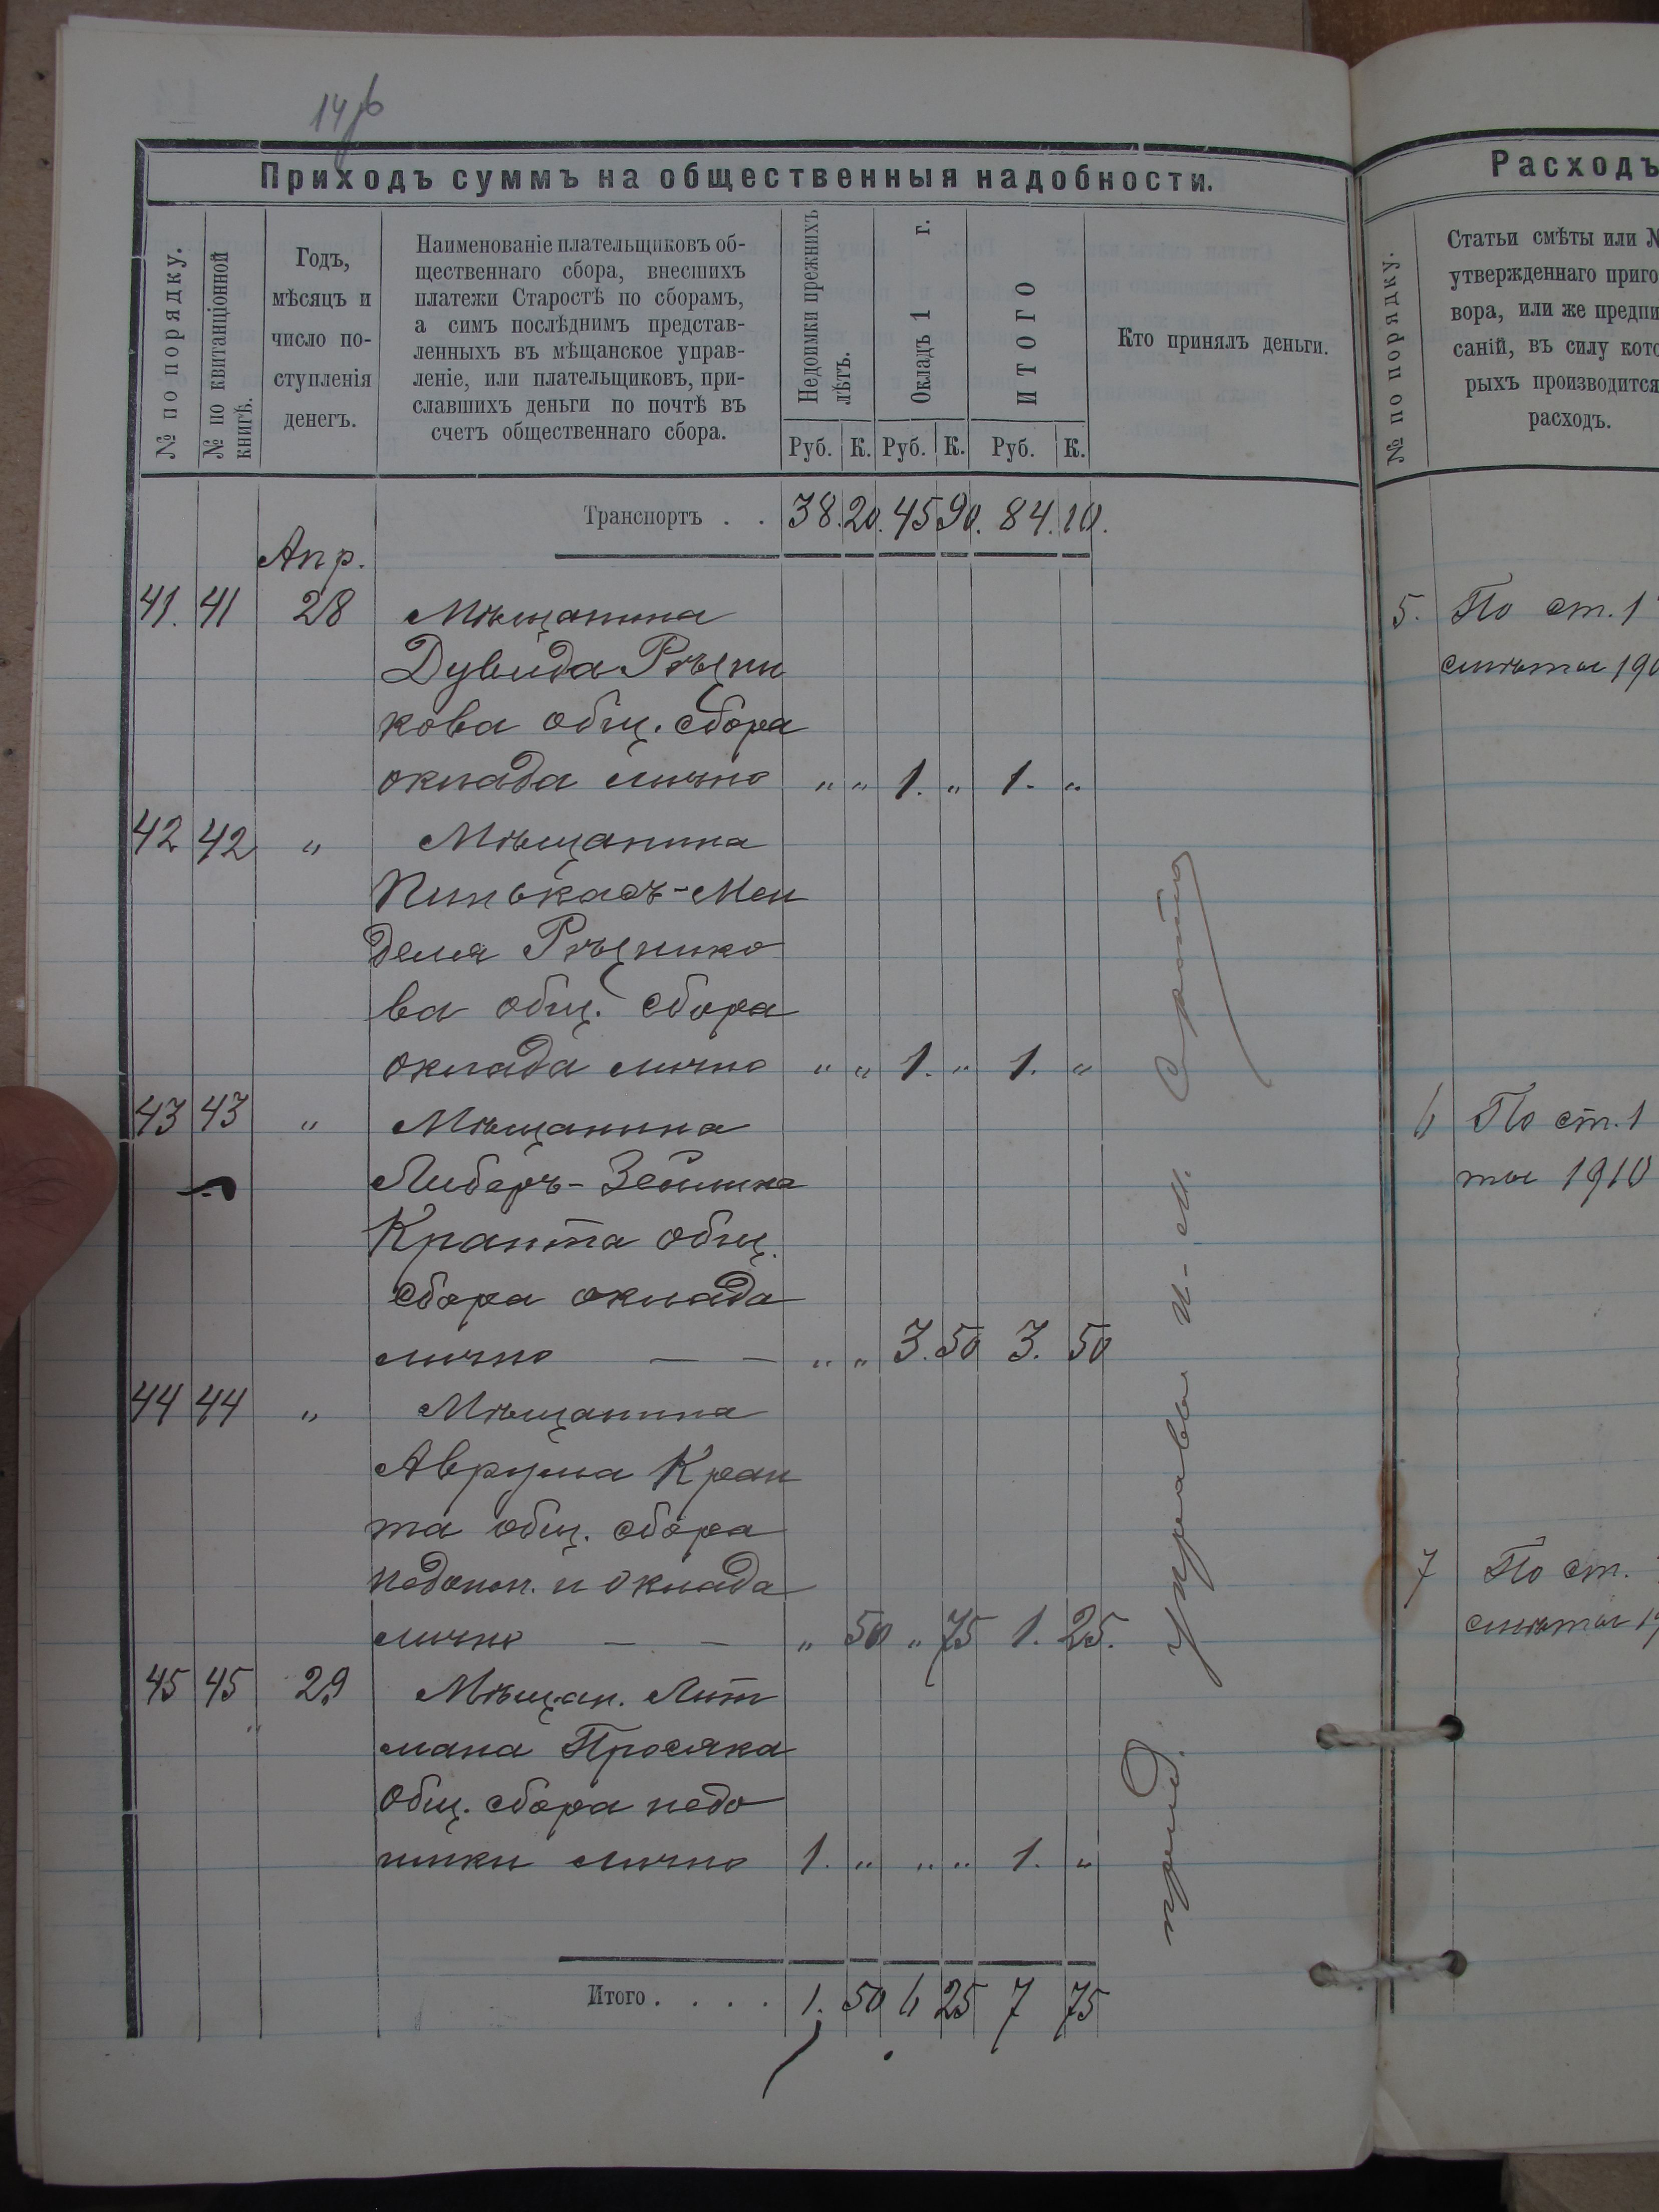 14 об
Приходъ суммъ на общественныя надобности.
№ по порядку.
№ по квитанціонной книгѣ.
Годъ,
мѣсяцъ и
число по-
ступленія
денегъ.
Наименованіе плательщиковъ об-
щественнаго сбора, внесшихъ
платежи Старостѣ по сборамъ,
а симъ послѣднимъ представ-
ленныхъ въ мѣщанское управ-
леніе, или плательщиковъ, при-
славшихъ деньги по почтѣ въ
счетъ общественнаго сбора.
Недоимки прежнихъ лѣтъ.
Окладъ 1 г.
ИТОГО
Кто принялъ деньги.
Руб. К. Руб. К. Руб. К.
Транспортъ . . 38. 20. 45 90. 84. 10.
Апр.
41. 41 28 Мѣщанина
Дувида Рѣзни
кова общ. сбора
оклада лично „ „ 1. „ 1. „
42 42 „ Мѣщанина
Пинькасъ-Мен
деля Рѣзнико
ва общ. сбора
оклада лично „ „ 1. „ 1. „
43 43 „ Мѣщанина
Либеръ-Зейлика
Кранта общ.
сбора оклада
лично — — „ „ 3. 50 3. 50
44 44 „ Мѣщанина
Аврума Кран
та общ. сбора
недоим. и оклада
лично — — „ 50 „ 75 1. 25.
45 45 29 Мѣщан. Лит
мана Просяка
общ. сбора недо
имки лично 1. „ „ „ 1. „
Итого . . . . 1. 50 6 25 7 75
управы
Расходъ
№ по порядку.
Статьи смѣты или №
утвержденнаго приго
вора, или же предпи
саній, въ силу кото
рыхъ производится
расходъ.
5. По ст. 1
смѣты 190
6 По ст. 1
ты 1910
7 По ст.
смѣты 19